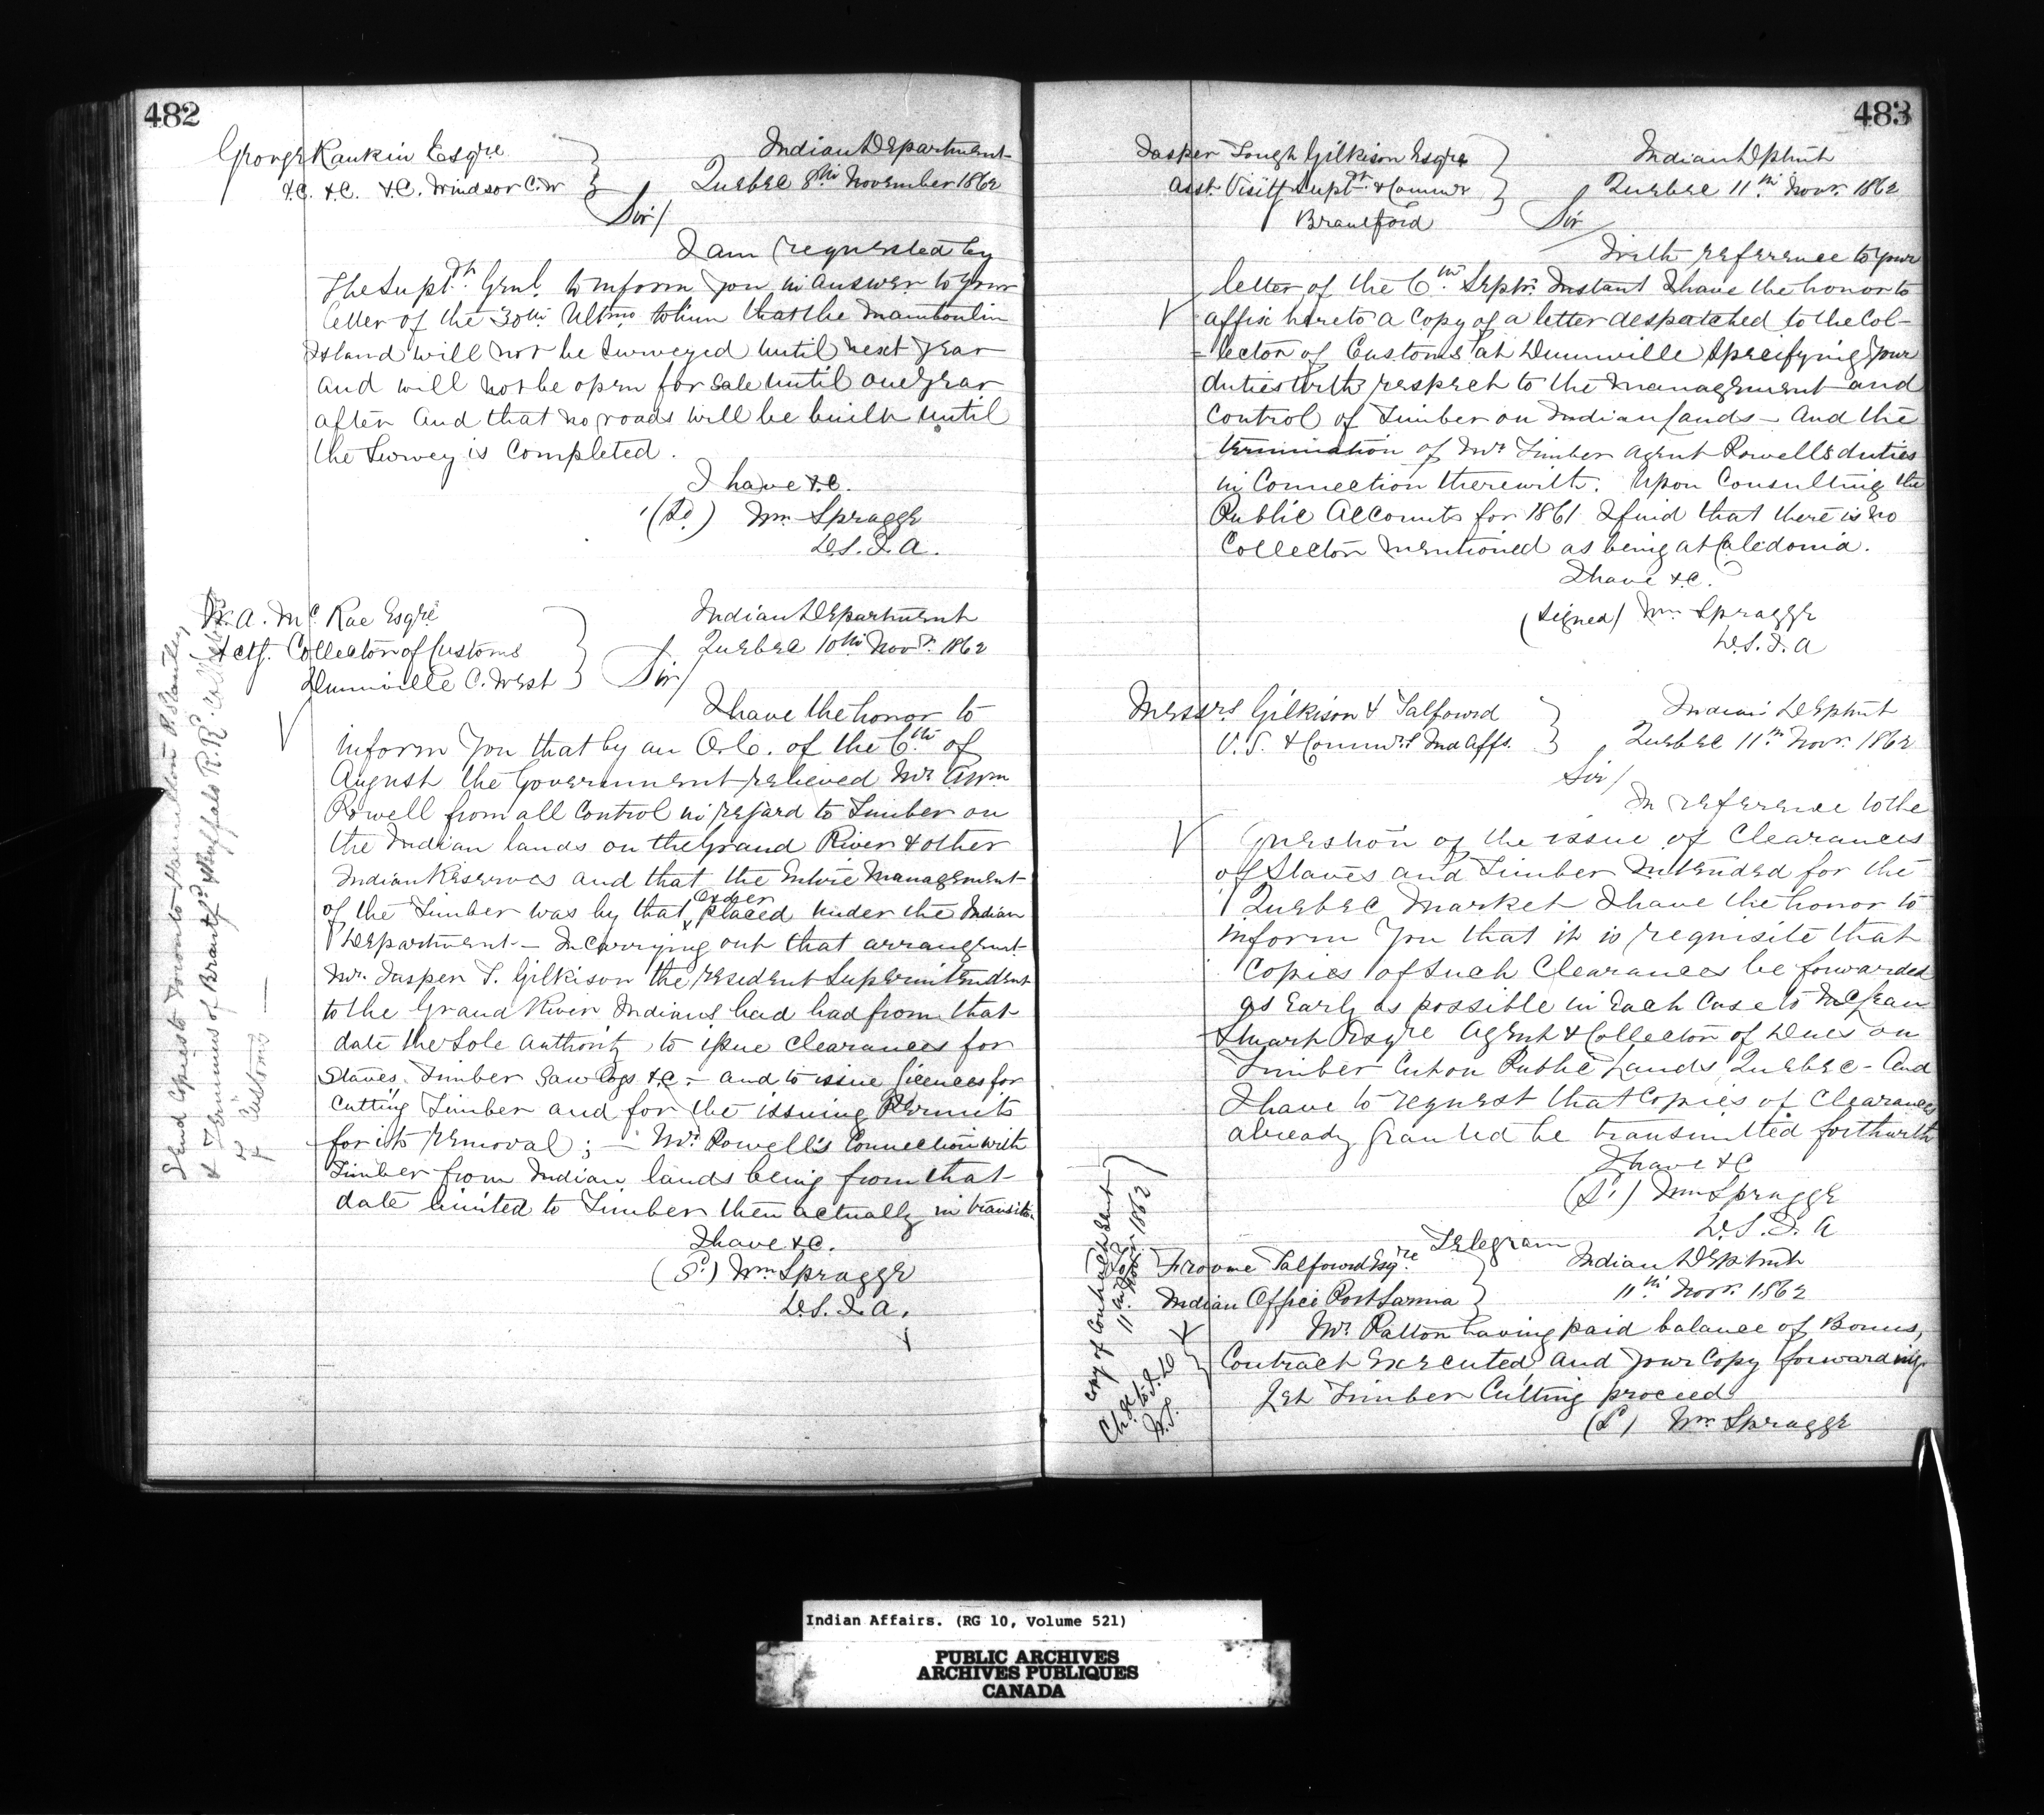 482
George Rankin Esqre
&C. &C. &C. Windsor C.W
Indian Department
Quebec 8th November 1862
Sir/
I am requested by
The Supdt. Genl. to inform you in answer to your
letter of the 30th Ultmo to him that the Manitoulin
Island will not be Surveyed until next year
and will not be open for sale until one year
after and that no roads will be built until
the Survey is Completed.
I have &c.
(Sd.) Wm Spragge
D.S.I.A.
A. McRae Esqre
Actg. Collector of Customs
Dunnville C. West
Indian Department
Quebec 10th Novr. 1862
Sir/
I have the honor to
inform you that by an O.C. of the 6th of
August the Government relieved Mr
Powell from all Control in regard to Timber on
the Indian lands on the Grand River & other
Indian Reserves and that the Entire Management
of the Timber was by that Order placed under the Indian
Department — In carrying out that arrangemt.
Mr. Jasper T. Gilkison the resident Superintendent
to the Grand River Indians had had from that
date the Sole authority to issue Clearances for
Staves, Timber Saw logs &c — and to issue licences for
Cutting Timber and for the issuing Permits
for its removal; — Mr. Powell's Connection with
Timber from Indian lands being from that
date limited to Timber then actually in transitu.
I have &c.
(Sd.) Wm Spragge
D.S.I.A.
Send Copies to Toronto Hamilton P. Stanley
& Terminus of Brantfd & Buffalo R.R.
of Customs —
483
Jasper Tough Gilkison Esqre
Asst. Visitg Supdt. & Commr
Brantford
Indian Dptmt
Quebec 11th Novr. 1862
Sir
With reference to your
letter of the 6th. Septr. Instant I have the honor to
affix hereto a Copy of a letter despatched to the Col-
-lector of Customs at Dunnville specifying your
duties with respect to the management and
Control of Timber on Indian lands — And the
termination of Mr Timber agent Powell's duties
in Connection therewith. Upon Consulting the
Public Accounts for 1861 I find that there is no
Collector mentioned as being at Caledonia.
I have &c.
(signed) Wm Spragge
D.S.I.A
Messrs Gilkison & Talfourd
V.S. & Commrs Ind Affs.
Indian Deptmt
Quebec 11th Novr. 1862
Sir/
In reference to the
Question of the issue of Clearances
of Staves and Timber Intended for the
Quebec Market I have the honor to
inform You that it is requisite that
Copies of Such Clearances be forwarded
as Early as possible in Each Case to McLean
Stuart Esqre Agent & Collector of Dues on
Timber Cut on Public Lands, Quebec — And
I have to request that Copies of Clearances
already granted be transmitted forthwith
I have &C
(Sd.) Wm Spragge
D.S.I.A
Telegram
Froome Talfourd Esqre
Indian Office Port Sarnia
Indian Deptmt
11th Novr. 1862
Mr. Patton having paid balance of Bonus,
Contract Executed and your Copy forwarding.
Let Timber Cutting proceed
(Sd) Wm Spragge
Copy of Contract Sent
11th Novr 1862
Chge to I.D
W.S.
Indian Affairs. (RG 10, Volume 521)
PUBLIC ARCHIVES
ARCHIVES PUBLIQUES
CANADA